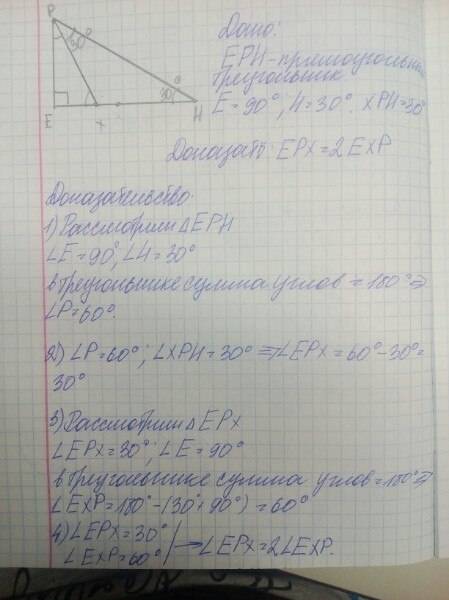 P
30°
30°
E
x
H
Дано:
EPH - прямоугольный
треугольник
E = 90°; H = 30°. XPH = 30°
Доказать: EPX = 2 EXP
Доказательство:
1) Рассмотрим △EPH
∠E = 90°, ∠H = 30°
в треугольнике сумма углов = 180° ⇒
∠P = 60°.
2) ∠P = 60°; ∠XPH = 30° ⇒ ∠EPX = 60° - 30° =
30°
3) Рассмотрим △EPX
∠EPX = 30°; ∠E = 90°
в треугольнике сумма углов = 180° ⇒
∠EXP = 180° - (30° + 90°) = 60°
4) ∠EPX = 30°
∠EXP = 60° → ∠EPX = 2∠EXP.